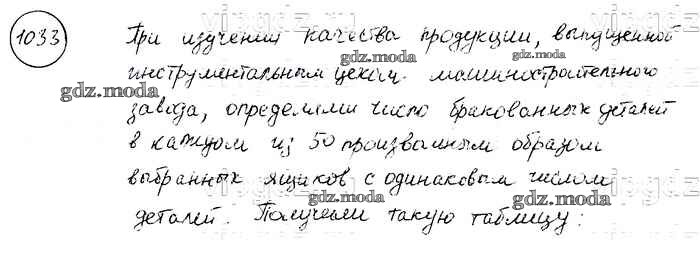 1033 При изучении качества продукции, выпущенной
инструментальным цехом машиностроительного
завода, определяли число бракованных деталей
в каждом из 50 произвольным образом
выбранных ящиков с одинаковым числом
деталей. Получили такую таблицу:
gdz.moda
gdz.moda
gdz.moda
gdz.moda
gdz.moda
gdz.moda
gdz.moda
gdz.moda